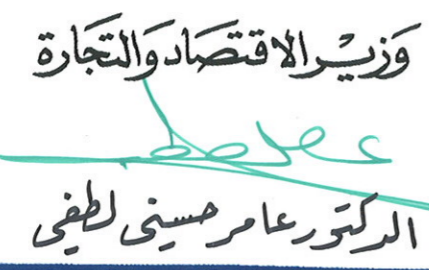 وَزيرالاقتصَاد وَالتجَارة
الدكتور عامر حسيني لطفي